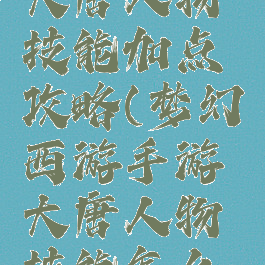 大唐人物
技能加点
攻略(梦幻
西游手游
大唐人物
技能怎么